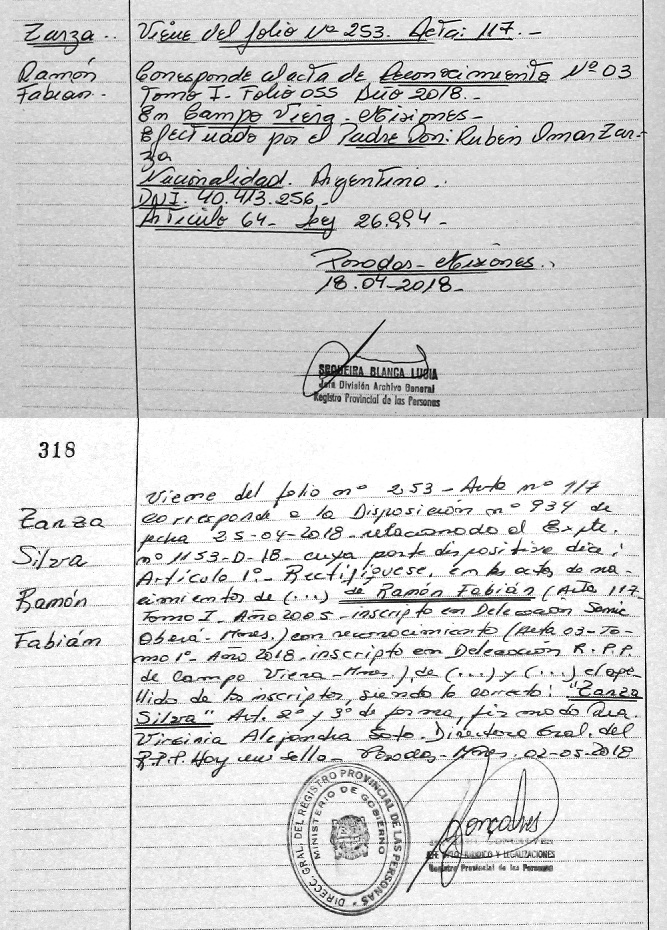 Zarza..
Ramón
Fabian..
Viene del folio Nº 253. Acta: 117.-
Corresponde al acta de Reconocimiento Nº 03
Tomo I. Folio 055 Año 2018.-
En Campo Viera - Misiones-
Efectuado por el Padre Don: Ruben Omar Zar-
za
Nacionalidad. Argentino.
DNI. 40.413.256-
Articulo 64- Ley 26.994-
Posadas- Misiones..
18.04-2018-
SEQUEIRA BLANCA LUCIA
Jefa División Archivo General
Registro Provincial de las Personas
318
Zarza
Silva
Ramón
Fabián
Viene del folio nº 253- Acta nº 117
corresponde a la Disposición nº 934 de
fecha 25-04-2018- relacionado al Expte.
nº 1153-D-18- cuya parte dispositiva dice:
Artículo 1º- Rectifíquese, en las actas de na-
cimientos de (...) de Ramón Fabián (Acta 117
Tomo I. Año 2005- inscripto en Delegación
Oberá- Mnes.) con reconocimiento (Acta 03-To-
mo 1º- Año 2018- inscripto en Delegación R.P.P.
de Campo Viera- Mnes.), de (...) y (...) el ape-
llido de los inscriptos, siendo lo correcto: "Zarza
Silva" Art. 2º y 3º de forma, firmado Dra.
Virginia Alejandra Soto- Directora Gral. del
R.P.P. Hay un sello- Posadas- Mnes. 02-05-2018
DIRECC. GRAL. DEL REGISTRO PROVINCIAL DE LAS PERSONAS
MINISTERIO DE GOBIERNO
Gonçalves
JURIDICO Y LEGALIZACIONES
Registro Provincial de las Personas